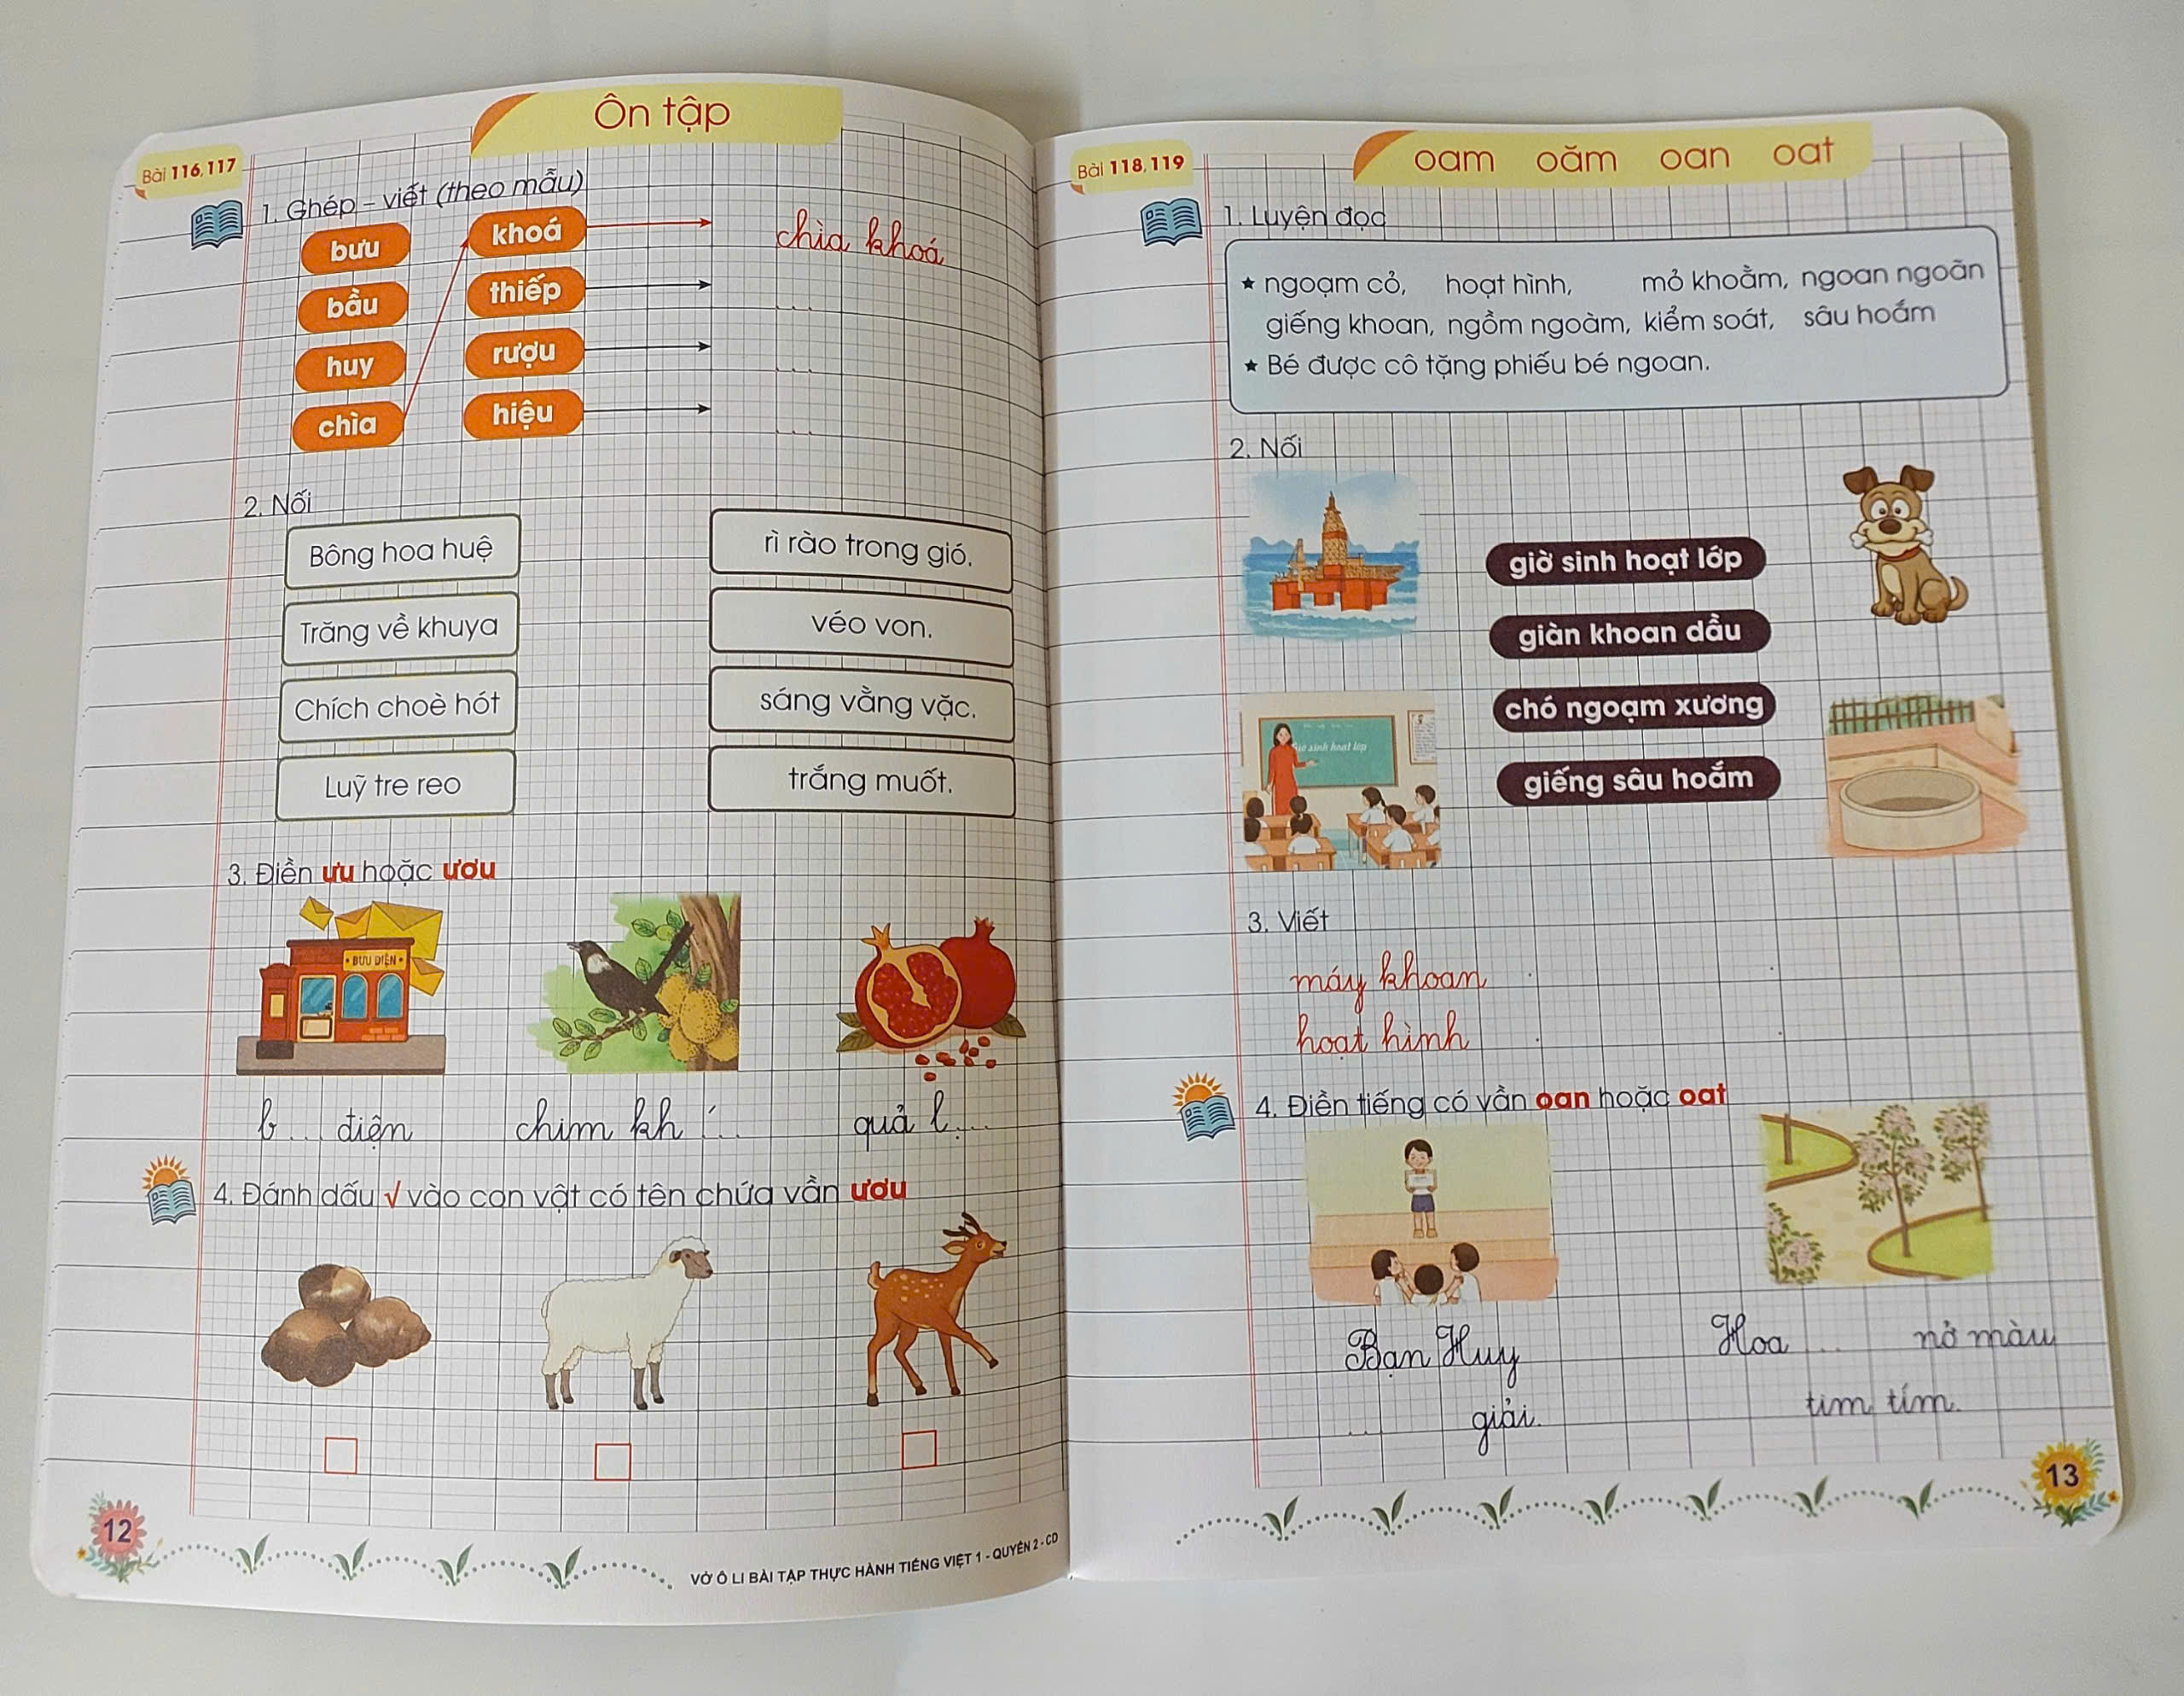 Ôn tập
Bài 116,117
1. Ghép - viết (theo mẫu)
bưu khoá chìa khoá
bầu thiếp ...
huy rượu ...
chìa hiệu ...
2. Nối
Bông hoa huệ rì rào trong gió.
Trăng về khuya véo von.
Chích choè hót sáng vằng vặc.
Luỹ tre reo trắng muốt.
3. Điền ưu hoặc ươu
BƯU ĐIỆN
b ... điện chim kh ́... quả l ̣...
4. Đánh dấu √ vào con vật có tên chứa vần ươu
12
VỞ Ô LI BÀI TẬP THỰC HÀNH TIẾNG VIỆT 1 - QUYỂN 2 - CD
Bài 118,119
oam oăm oan oat
1. Luyện đọc
★ ngoạm cỏ, hoạt hình, mỏ khoằm, ngoan ngoãn
giếng khoan, ngồm ngoàm, kiểm soát, sâu hoắm
★ Bé được cô tặng phiếu bé ngoan.
2. Nối
giờ sinh hoạt lớp
giàn khoan dầu
chó ngoạm xương
giếng sâu hoắm
Giờ sinh hoạt lớp
3. Viết
máy khoan
hoạt hình
4. Điền tiếng có vần oan hoặc oat
Bạn Huy Hoa ... nở màu
... giải. tim tím.
13